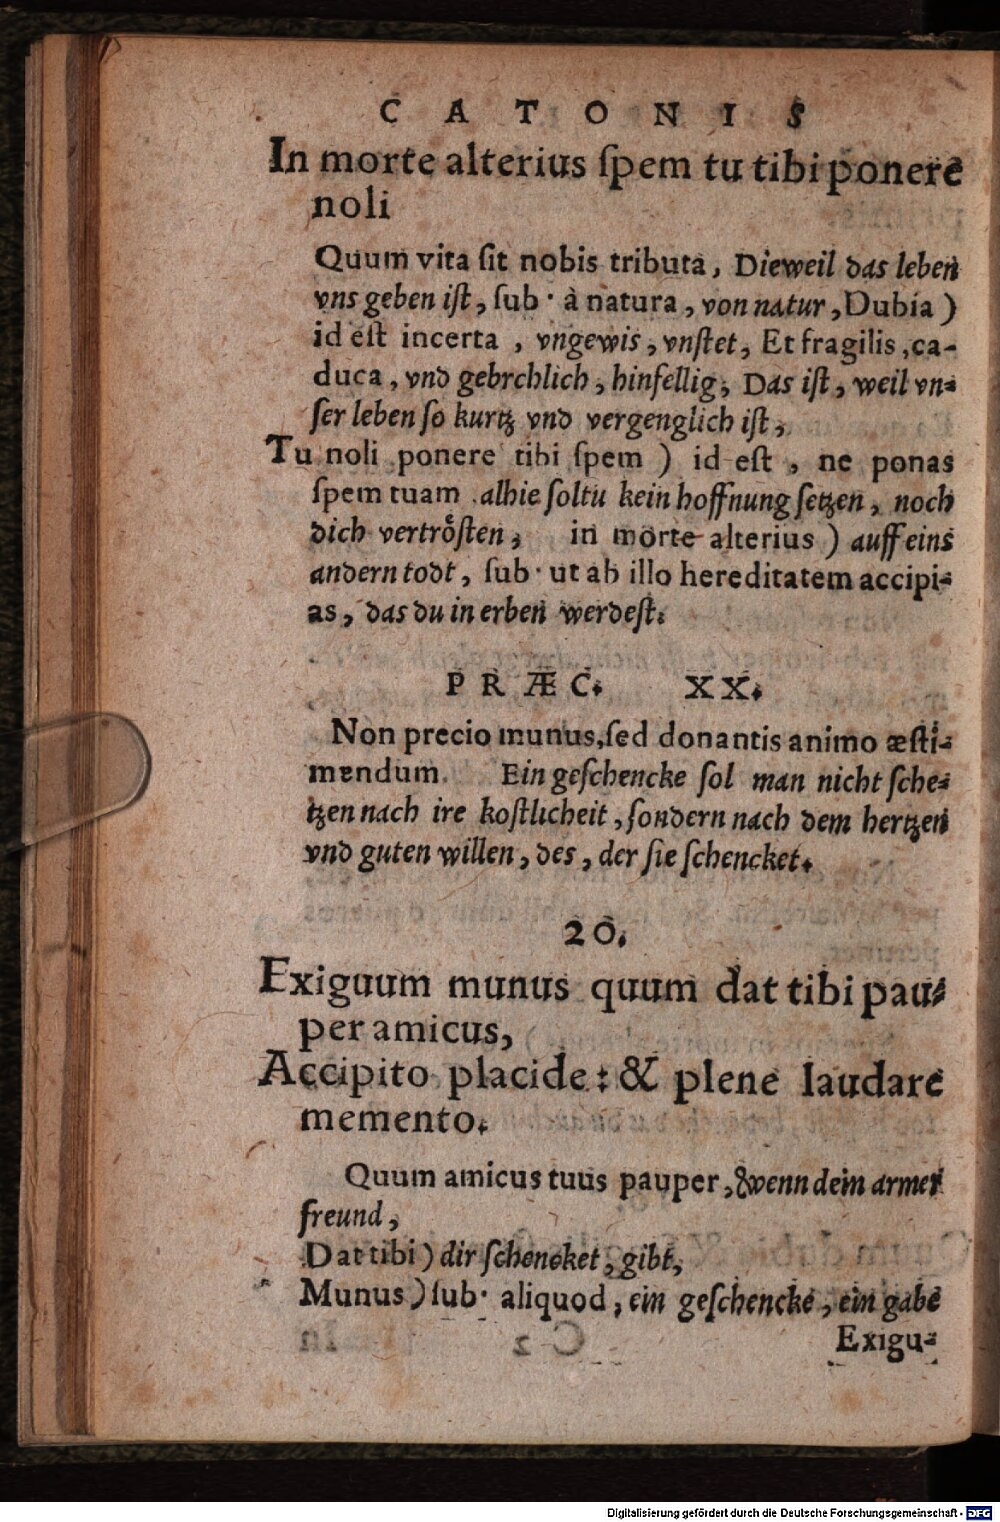 CATONIS
In morte alterius ſpem tu tibi ponere
noli
Quum vita ſit nobis tributa, Dieweil das leben
vns geben iſt, ſub· à natura, von natur, Dubia)
id eſt incerta, vngewis, vnſtet, Et fragilis, ca-
duca, vnd gebrchlich, hinfellig, Das iſt, weil vn-
ſer leben ſo kurtz vnd vergenglich iſt,
Tu noli ponere tibi ſpem) id eſt, ne ponas
ſpem tuam alhie ſoltu kein hoffnung ſetzen, noch
dich vertröſten, in morte alterius) auff eins
andern todt, ſub· ut ab illo hereditatem accipi-
as, das du in erben werdeſt.
PRÆC. XX.
Non precio munus, ſed donantis animo æſti-
mendum. Ein geſchencke ſol man nicht ſche-
tzen nach ire koſtlicheit, ſondern nach dem hertzen
vnd guten willen, des, der ſie ſchencket.
20.
Exiguum munus quum dat tibi pau-
per amicus,
Accipito placide: & plene laudare
memento.
Quum amicus tuus pauper, wenn dein armer
freund,
Dat tibi) dir ſchencket, gibt,
Munus) ſub· aliquod, ein geſchencke, ein gabe
Exigu-
Digitalisierung gefördert durch die Deutsche Forschungsgemeinschaft - DFG